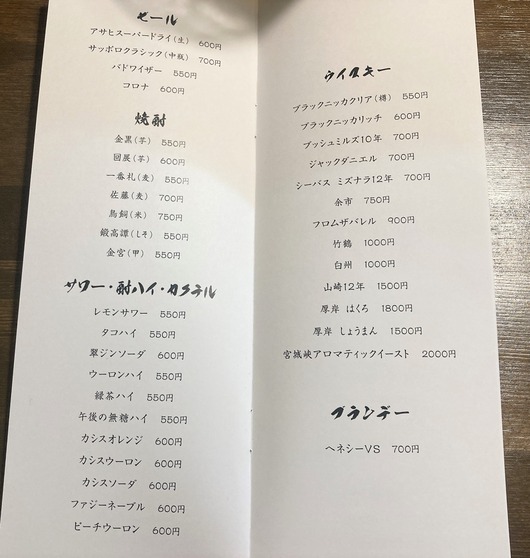 ビール
アサヒスーパードライ(生) 600円
サッポロクラシック(中瓶) 700円
バドワイザー 550円
コロナ 600円
焼酎
金黒(芋) 550円
(芋) 600円
一番札(麦) 550円
佐藤(麦) 700円
鳥飼(米) 750円
鍛高譚(しそ) 550円
金宮(甲) 550円
サワー・酎ハイ・カクテル
レモンサワー 550円
タコハイ 550円
翠ジンソーダ 600円
ウーロンハイ 550円
緑茶ハイ 550円
午後の無糖ハイ 550円
カシスオレンジ 600円
カシスウーロン 600円
カシスソーダ 600円
ファジーネーブル 600円
ピーチウーロン 600円
ウイスキー
ブラックニッカクリア(樽) 550円
ブラックニッカリッチ 600円
ブッシュミルズ10年 700円
ジャックダニエル 700円
シーバス ミズナラ12年 700円
余市 750円
フロムザバレル 900円
竹鶴 1000円
白州 1000円
山崎12年 1500円
厚岸 はくろ 1800円
厚岸 しょうまん 1500円
宮城峡アロマティックイースト 2000円
ブランデー
ヘネシーVS 700円